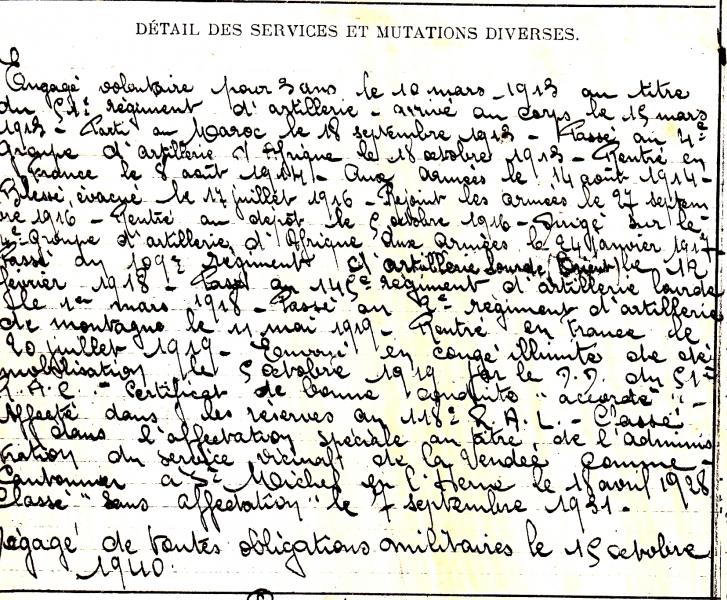 DÉTAIL DES SERVICES ET MUTATIONS DIVERSES.
Engagé volontaire pour 3 ans le 10 mars 1913 au titre
du 51e régiment d'artillerie - arrivé au corps le 15 mars
1913 - Parti au Maroc le 18 septembre 1913 - Passé au 4e
groupe d'artillerie d'Afrique le 18 octobre 1913 - Rentré en
France le 8 août 1914 - Aux armées le 14 août 1914 -
Blessé, évacué le 17 juillet 1916 - Rejoint les armées le 27 septem-
bre 1916 - Rentré au dépôt le 5 octobre 1916 - Dirigé sur le
Groupe d'artillerie d'Afrique aux armées le 24 janvier 1917
Passé au 109e régiment d'artillerie lourde (Orient) le 12
février 1918 - Passé au 145e régiment d'artillerie lourde
le 1er mars 1918 - Passé au 2e régiment d'artillerie
de montagne le 11 mai 1919 - Rentré en France le
20 juillet 1919 - Envoyé en congé illimité de dé
mobilisation le 5 octobre 1919 par le D.D. du 51e
R.A.C. - Certificat de bonne conduite "accordé" -
Affecté dans les réserves au 118e R.A.L. - Classé
dans l'affectation spéciale au titre de l'adminis
tration du service vicinal de la Vendée comme
Cantonnier à St Michel en l'Herm le 1er avril 1928
Classé "sans affectation" le 7 septembre 1931.
Dégagé de toutes obligations militaires le 15 octobre
1940.